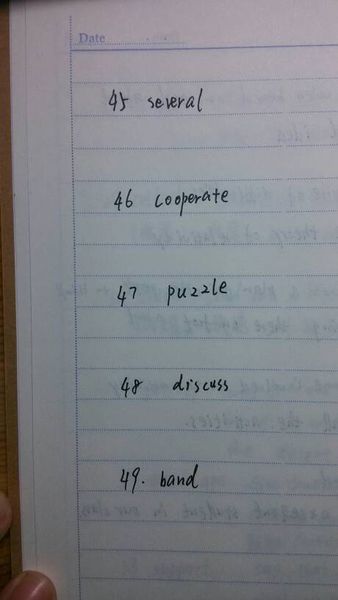 Date
45 several
46 cooperate
47 puzzle
48 discuss
49. band